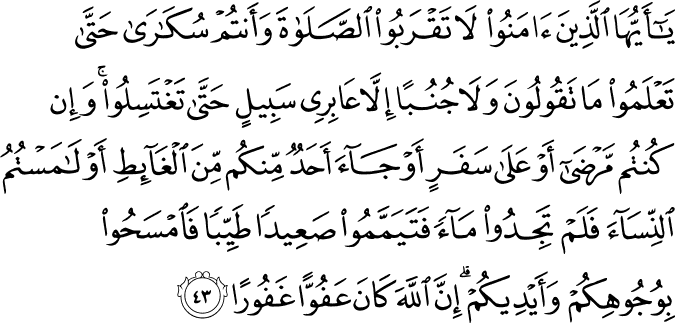 يَـٰٓأَيُّهَا ٱلَّذِينَ ءَامَنُوا۟ لَا تَقْرَبُوا۟ ٱلصَّلَوٰةَ وَأَنتُمْ سُكَـٰرَىٰ حَتَّىٰ
تَعْلَمُوا۟ مَا تَقُولُونَ وَلَا جُنُبًا إِلَّا عَابِرِى سَبِيلٍ حَتَّىٰ تَغْتَسِلُوا۟ ۚ وَإِن
كُنتُم مَّرْضَىٰٓ أَوْ عَلَىٰ سَفَرٍ أَوْ جَآءَ أَحَدٌ مِّنكُم مِّنَ ٱلْغَآئِطِ أَوْ لَـٰمَسْتُمُ
ٱلنِّسَآءَ فَلَمْ تَجِدُوا۟ مَآءً فَتَيَمَّمُوا۟ صَعِيدًا طَيِّبًا فَٱمْسَحُوا۟
بِوُجُوهِكُمْ وَأَيْدِيكُمْ ۗ إِنَّ ٱللَّهَ كَانَ عَفُوًّا غَفُورًا ٤٣